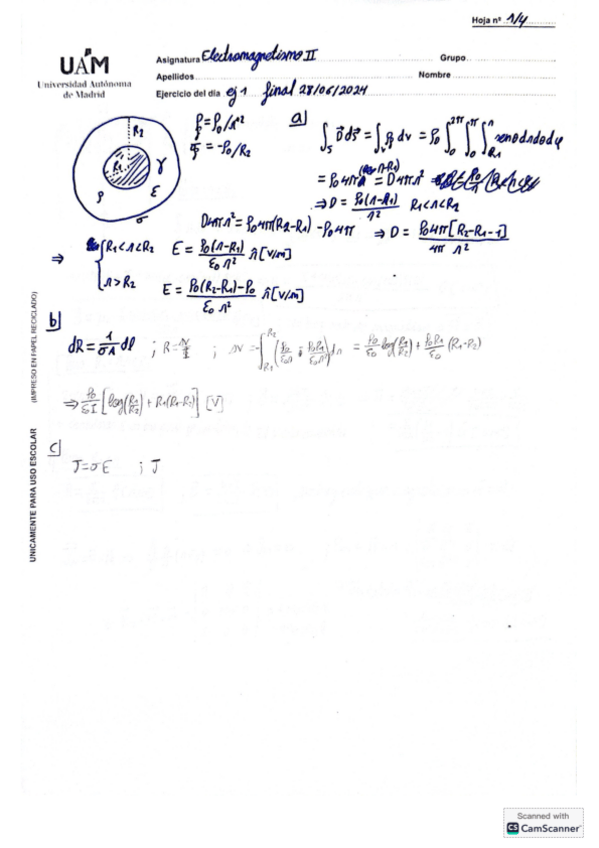 Hoja nº 1/4
UAM
Universidad Autónoma
de Madrid
Asignatura Electromagnetismo II Grupo
Apellidos Nombre
Ejercicio del día ej 1 final 28/06/2024
R2
R1
γ
ρ
ε
σ
ρ = ρ0/r²
σ = -ρ0/R2
a)
∫s D ds = ∫v ρ dv = ρ0 ∫0^2π ∫0^π ∫R1^r senθ dr dθ dφ
= ρ0 4π (r-R1) = D 4π r²
⇒ D = ρ0(r-R1)/r² R1<r<R2
D4πr² = ρ04π(R2-R1) - ρ04π ⇒ D = ρ04π[R2-R1-1]/4π r²
⇒ { R1<r<R2 E = ρ0(r-R1)/ε0 r² r̂ [V/m]
r>R2 E = ρ0(R2-R1)-ρ0/ε0 r² r̂ [V/m]
b)
dR = 1/σA dl ; R = V/I ; ΔV = -∫R1^R2 (ρ0/ε0r + ρ0R1/ε0r²) dr = ρ0/ε0 log(R1/R2) + ρ0R1/ε0 (R1-R2)
⇒ ρ0/εI [log(R1/R2) + R1(R1-R2)] [V]
c)
J = σE ; J
UNICAMENTE PARA USO ESCOLAR (IMPRESO EN PAPEL RECICLADO)
Scanned with
CS CamScanner